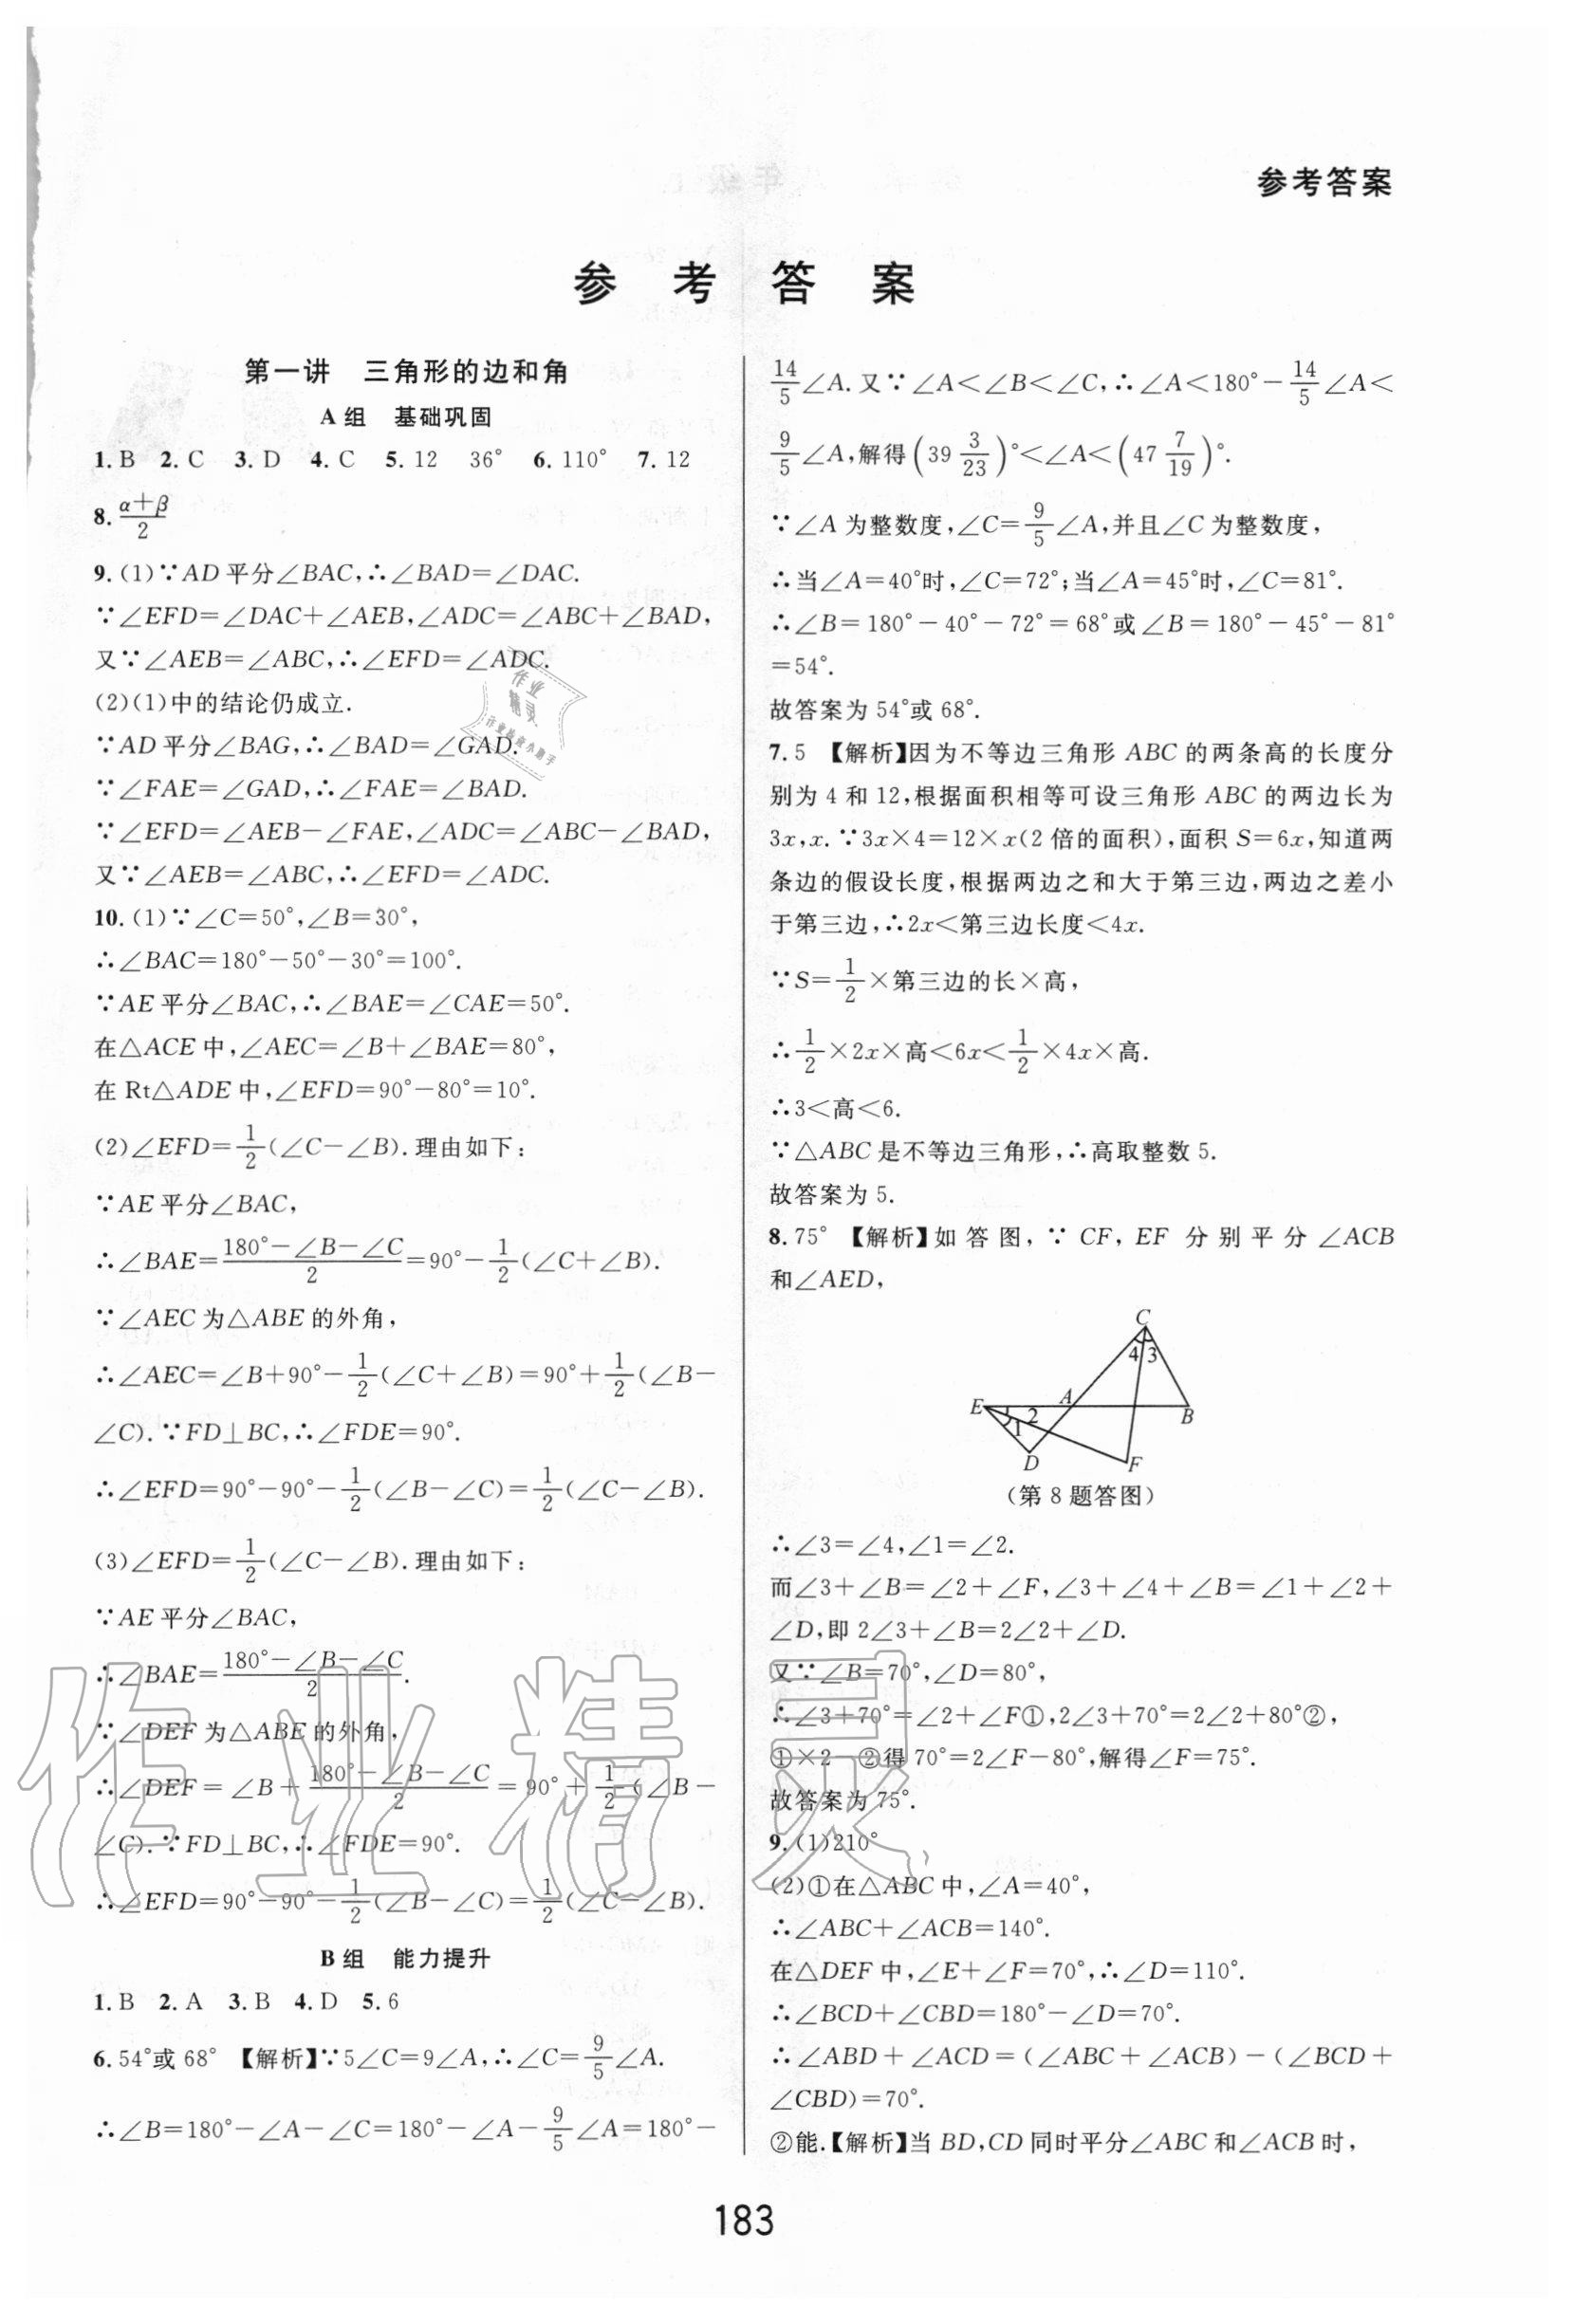 参考答案
参 考 答 案
第一讲 三角形的边和角
A 组 基础巩固
1. B 2. C 3. D 4. C 5. 12 36° 6. 110° 7. 12
8. (α+β)/2
9. (1)∵AD 平分∠BAC,∴∠BAD=∠DAC.
∵∠EFD=∠DAC+∠AEB,∠ADC=∠ABC+∠BAD,
又∵∠AEB=∠ABC,∴∠EFD=∠ADC.
(2)(1)中的结论仍成立.
∵AD 平分∠BAG,∴∠BAD=∠GAD.
∵∠FAE=∠GAD,∴∠FAE=∠BAD.
∵∠EFD=∠AEB-∠FAE,∠ADC=∠ABC-∠BAD,
又∵∠AEB=∠ABC,∴∠EFD=∠ADC.
10. (1)∵∠C=50°,∠B=30°,
∴∠BAC=180°-50°-30°=100°.
∵AE 平分∠BAC,∴∠BAE=∠CAE=50°.
在△ACE 中,∠AEC=∠B+∠BAE=80°,
在 Rt△ADE 中,∠EFD=90°-80°=10°.
(2)∠EFD=1/2(∠C-∠B).理由如下:
∵AE 平分∠BAC,
∴∠BAE=(180°-∠B-∠C)/2=90°-1/2(∠C+∠B).
∵∠AEC 为△ABE 的外角,
∴∠AEC=∠B+90°-1/2(∠C+∠B)=90°+1/2(∠B-
∠C).∵FD⊥BC,∴∠FDE=90°.
∴∠EFD=90°-90°-1/2(∠B-∠C)=1/2(∠C-∠B).
(3)∠EFD=1/2(∠C-∠B).理由如下:
∵AE 平分∠BAC,
∴∠BAE=(180°-∠B-∠C)/2.
∵∠DEF 为△ABE 的外角,
∴∠DEF=∠B+(180°-∠B-∠C)/2=90°+1/2(∠B-
∠C).∵FD⊥BC,∴∠FDE=90°.
∴∠EFD=90°-90°-1/2(∠B-∠C)=1/2(∠C-∠B).
B 组 能力提升
1. B 2. A 3. B 4. D 5. 6
6. 54°或 68° 【解析】∵5∠C=9∠A,∴∠C=9/5∠A.
∴∠B=180°-∠A-∠C=180°-∠A-9/5∠A=180°-
14/5∠A.又∵∠A<∠B<∠C,∴∠A<180°-14/5∠A<
9/5∠A,解得(39 3/23)°<∠A<(47 7/19)°.
∵∠A 为整数度,∠C=9/5∠A,并且∠C 为整数度,
∴当∠A=40°时,∠C=72°;当∠A=45°时,∠C=81°.
∴∠B=180°-40°-72°=68°或∠B=180°-45°-81°
=54°.
故答案为 54°或 68°.
7. 5 【解析】因为不等边三角形 ABC 的两条高的长度分
别为 4 和 12,根据面积相等可设三角形 ABC 的两边长为
3x,x.∵3x×4=12×x(2 倍的面积),面积 S=6x,知道两
条边的假设长度,根据两边之和大于第三边,两边之差小
于第三边,∴2x<第三边长度<4x.
∵S=1/2×第三边的长×高,
∴1/2×2x×高<6x<1/2×4x×高.
∴3<高<6.
∵△ABC 是不等边三角形,∴高取整数 5.
故答案为 5.
8. 75° 【解析】如答图,∵CF,EF 分别平分∠ACB
和∠AED,
C
4 3
E A B
2
1
D F
(第 8 题答图)
∴∠3=∠4,∠1=∠2.
而∠3+∠B=∠2+∠F,∠3+∠4+∠B=∠1+∠2+
∠D,即 2∠3+∠B=2∠2+∠D.
又∵∠B=70°,∠D=80°,
∴∠3+70°=∠2+∠F①,2∠3+70°=2∠2+80°②,
①×2-②得 70°=2∠F-80°,解得∠F=75°.
故答案为 75°.
9. (1)210°
(2)①在△ABC 中,∠A=40°,
∴∠ABC+∠ACB=140°.
在△DEF 中,∠E+∠F=70°,∴∠D=110°.
∴∠BCD+∠CBD=180°-∠D=70°.
∴∠ABD+∠ACD=(∠ABC+∠ACB)-(∠BCD+
∠CBD)=70°.
②能.【解析】当 BD,CD 同时平分∠ABC 和∠ACB 时,
183
作业精灵
作业
精灵